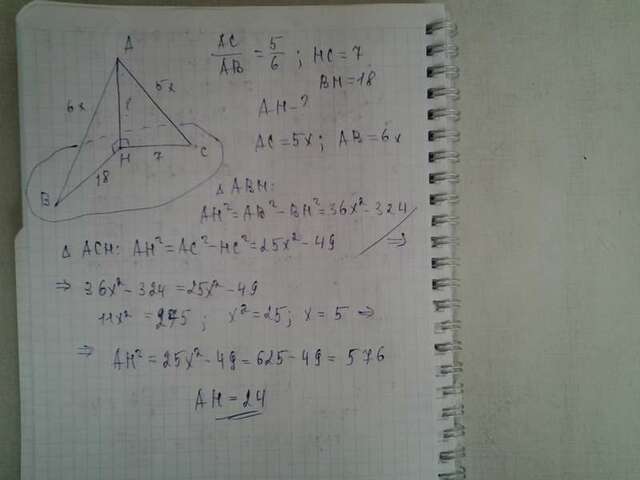 A
6x
5x
H
7
C
18
B
AC/AB = 5/6 ; HC = 7
BH = 18
AH - ?
AC = 5x ; AB = 6x
Δ ABH:
AH² = AB² - BH² = 36x² - 324
Δ ACH: AH² = AC² - HC² = 25x² - 49 ⇒
⇒ 36x² - 324 = 25x² - 49
11x² = 275 ; x² = 25 ; x = 5 ⇒
⇒ AH² = 25x² - 49 = 625 - 49 = 576
AH = 24